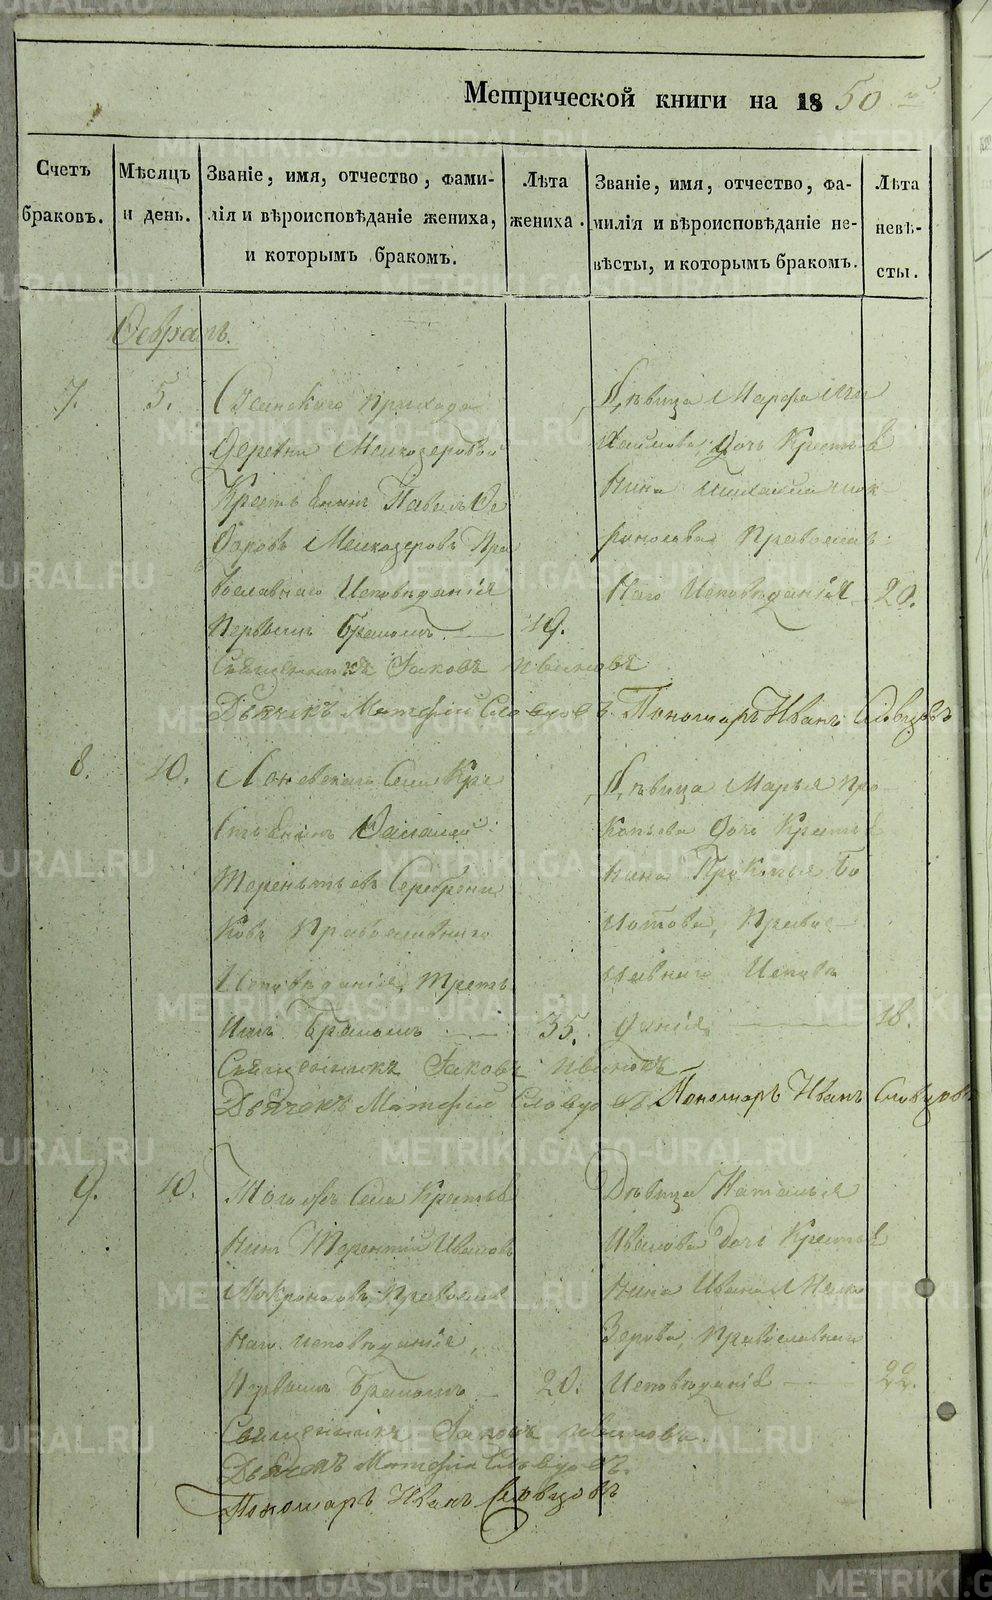 Метрической книги на 1850 й
Счетъ браковъ.
Мѣсяцъ и день.
Званіе, имя, отчество, фами-
лія и вѣроисповѣданіе жениха,
и которымъ бракомъ.
Лѣта жениха.
Званіе, имя, отчество, фа-
милія и вѣроисповѣданіе не-
вѣсты, и которымъ бракомъ.
Лѣта невѣ-
сты.
Февраль.
7.
5.
прихода
Деревни Мелкозеровой
Крестьянинъ Павилъ Фе
доровъ Мелкозеровъ Пра
вославнаго Исповѣданія
Первымъ бракомъ 19.
Дѣвица Марфа Ми
хайлова, дочь Крестья
нина Михаила Мок-
роносова Православ-
наго Исповѣданія 20.
Священникъ Іаковъ Ивановъ
Дьячекъ Матфій Словцовъ. Пономарь Иванъ Словцовъ
8.
10.
Села Кре
стьянинъ
Терентьевъ Серебрени
ковъ Православнаго
Исповѣданія, Треть
имъ бракомъ 35.
Дѣвица Марья Про
копьева дочь Крестья
нина Прокопья Бо
лотова, Правос-
лавнаго Исповѣ
данія, 18.
Священникъ Іаковъ Ивановъ
Дьячекъ Матфій Словцовъ. Пономарь Иванъ Словцовъ
9.
10.
Тогожъ Села Крестья
нинъ Терентій Ивановъ
Мокроносовъ Православ
наго исповѣданія,
Первымъ бракомъ 20.
Дѣвица Наталья
Иванова дочь Крестья
нина Ивана Мелко
зерова, Православнаго
Исповѣданія 22.
Священникъ Іаковъ Ивановъ.
Дьячекъ Матфій Словцовъ.
Пономарь Иванъ Словцовъ
METRIKI.GASO-URAL.RU